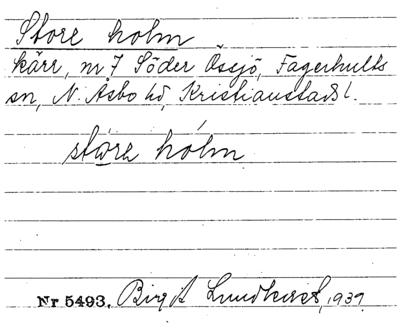 Store holm
kärr, nr 7 Söder Össjö, Fagerhults
sn, N. Åsbo hd, Kristianstads l.
stọ́rə hólm
Nr 5493. Birgit Lundkvist, 1937